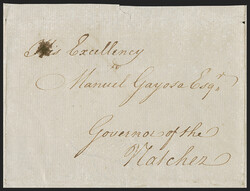 His Excellency
Manuel Gayosa Esqr
Governor of the
Natchez